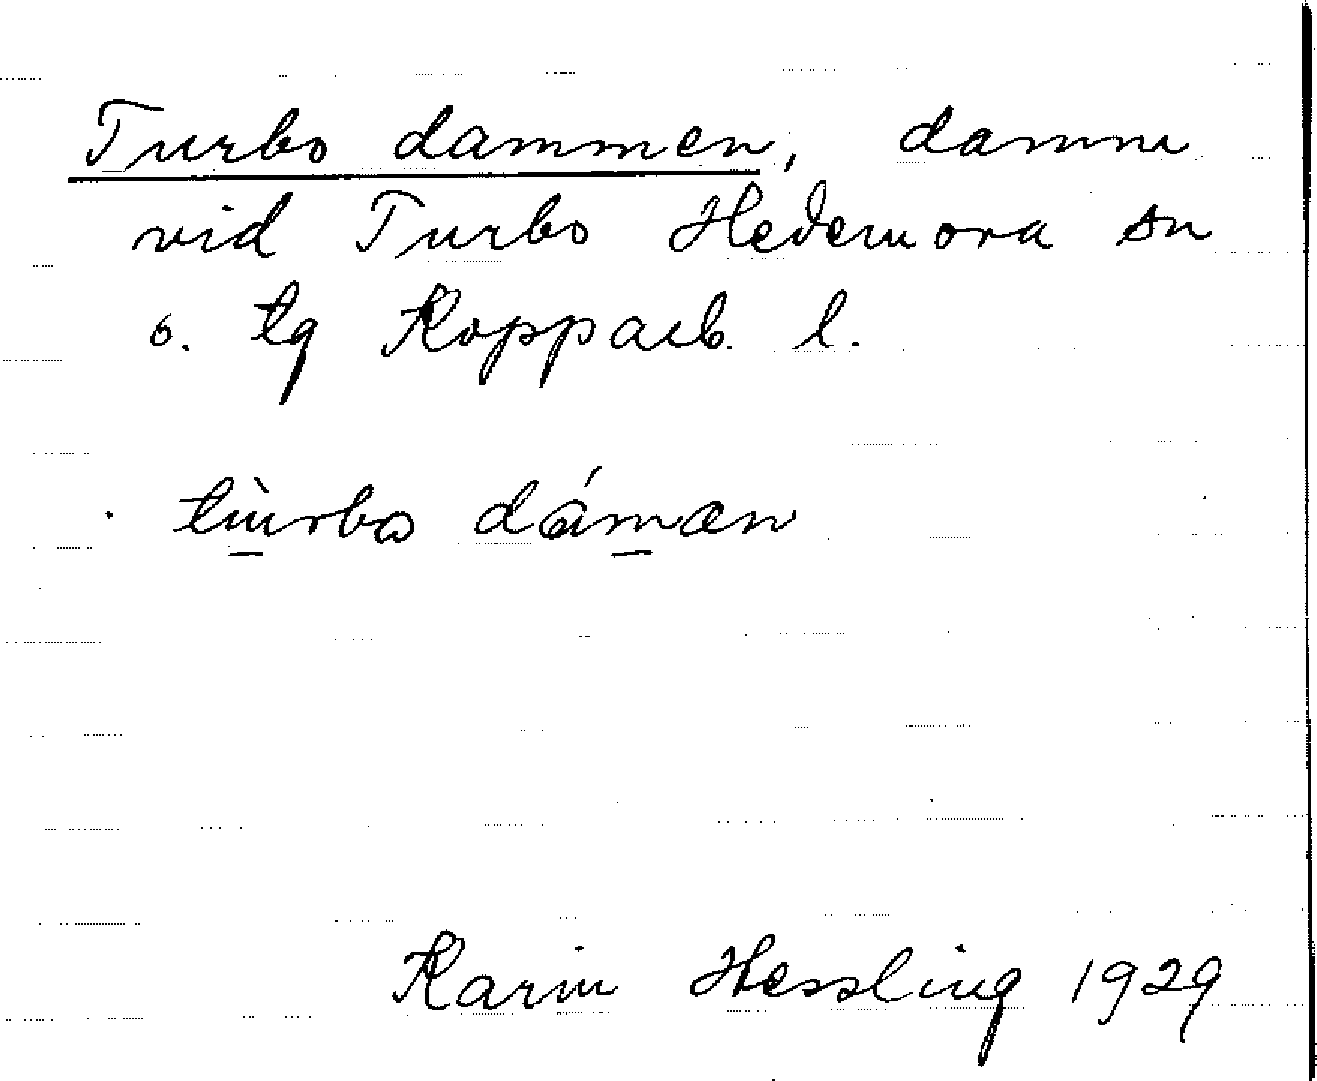 Turbo dammen, damm
vid Turbo Hedemora sn
o. tg Kopparb. l.
tùrbo dámæn
Karin Hessling 1929